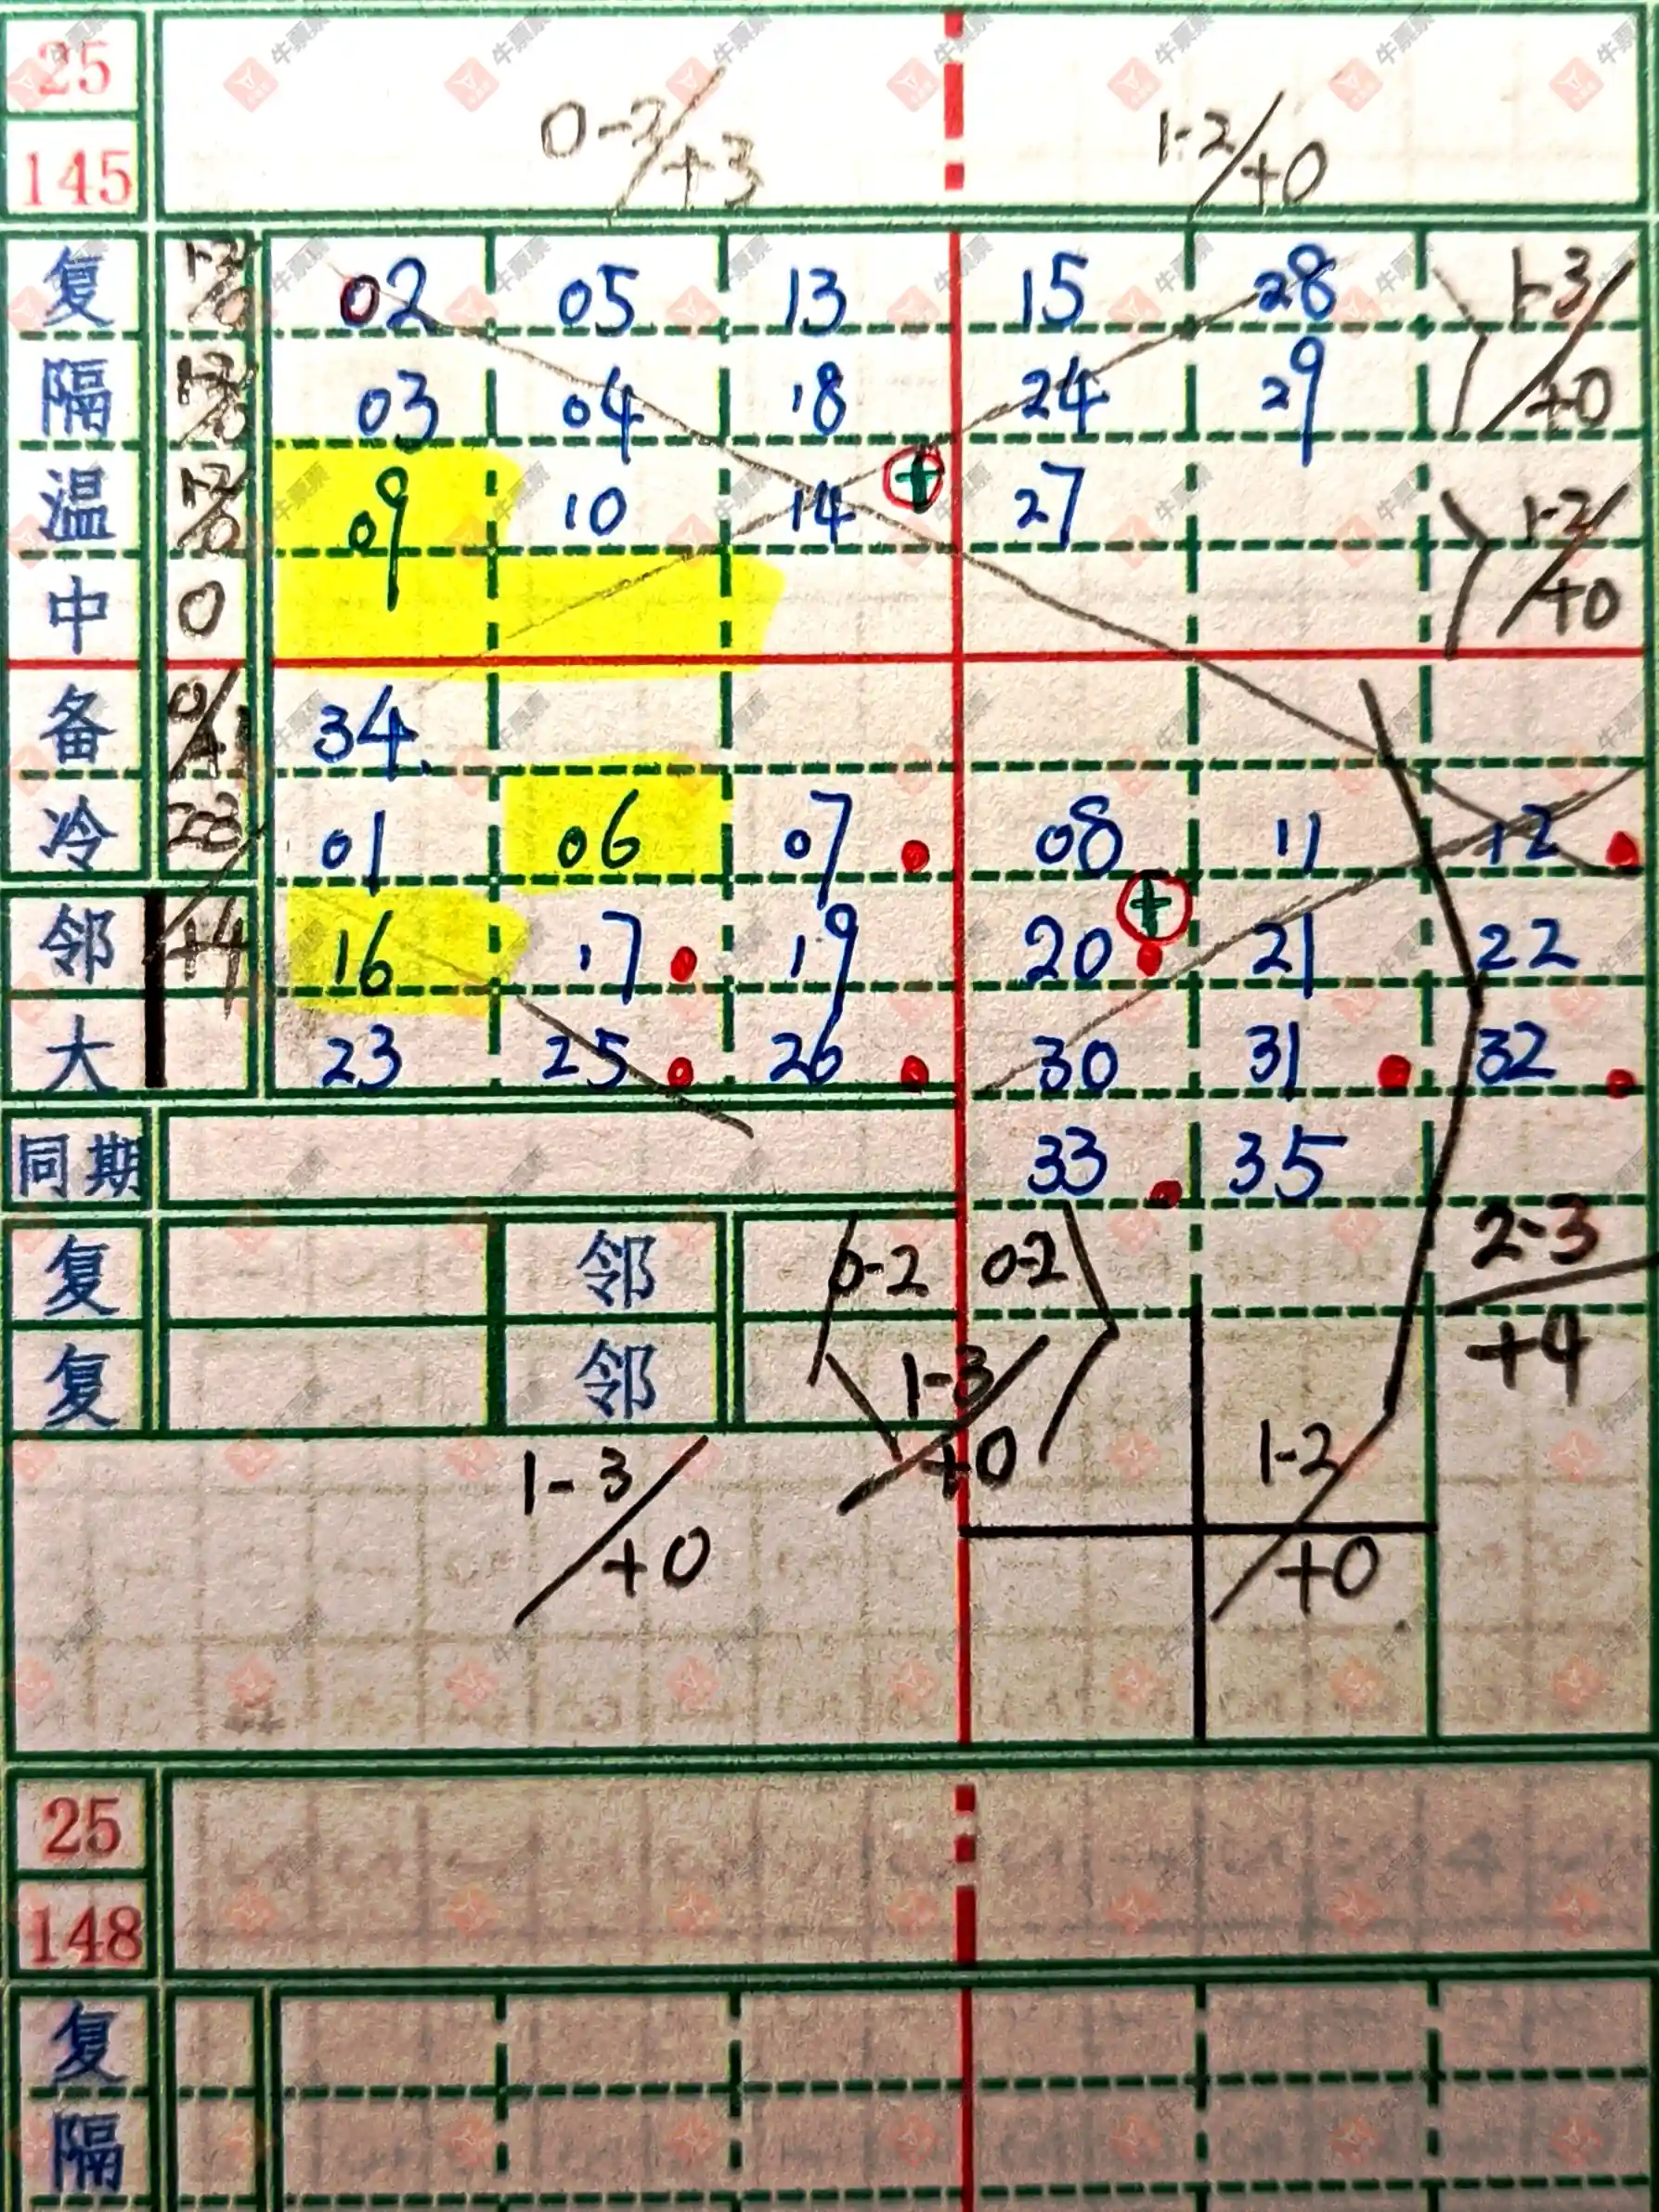 25
145
0-2/+3 1-2/+0
复 1-2/+0 02 05 13 15 28 1-3/+0
隔 1-2/+0 03 04 18 24 29
温 1-2/+0 09 10 14 + 27 1-2/+0
中 0
备 0/+1 34
冷 2-3/+4 01 06 07 08 11 12
邻 16 17 19 + 20 21 22
大 23 25 26 30 31 32
同期 33 35
复 邻 0-2 0-2 2-3/+4
复 邻 1-3/+0
1-3/+0 1-2/+0
25
148
复
隔
牛票票